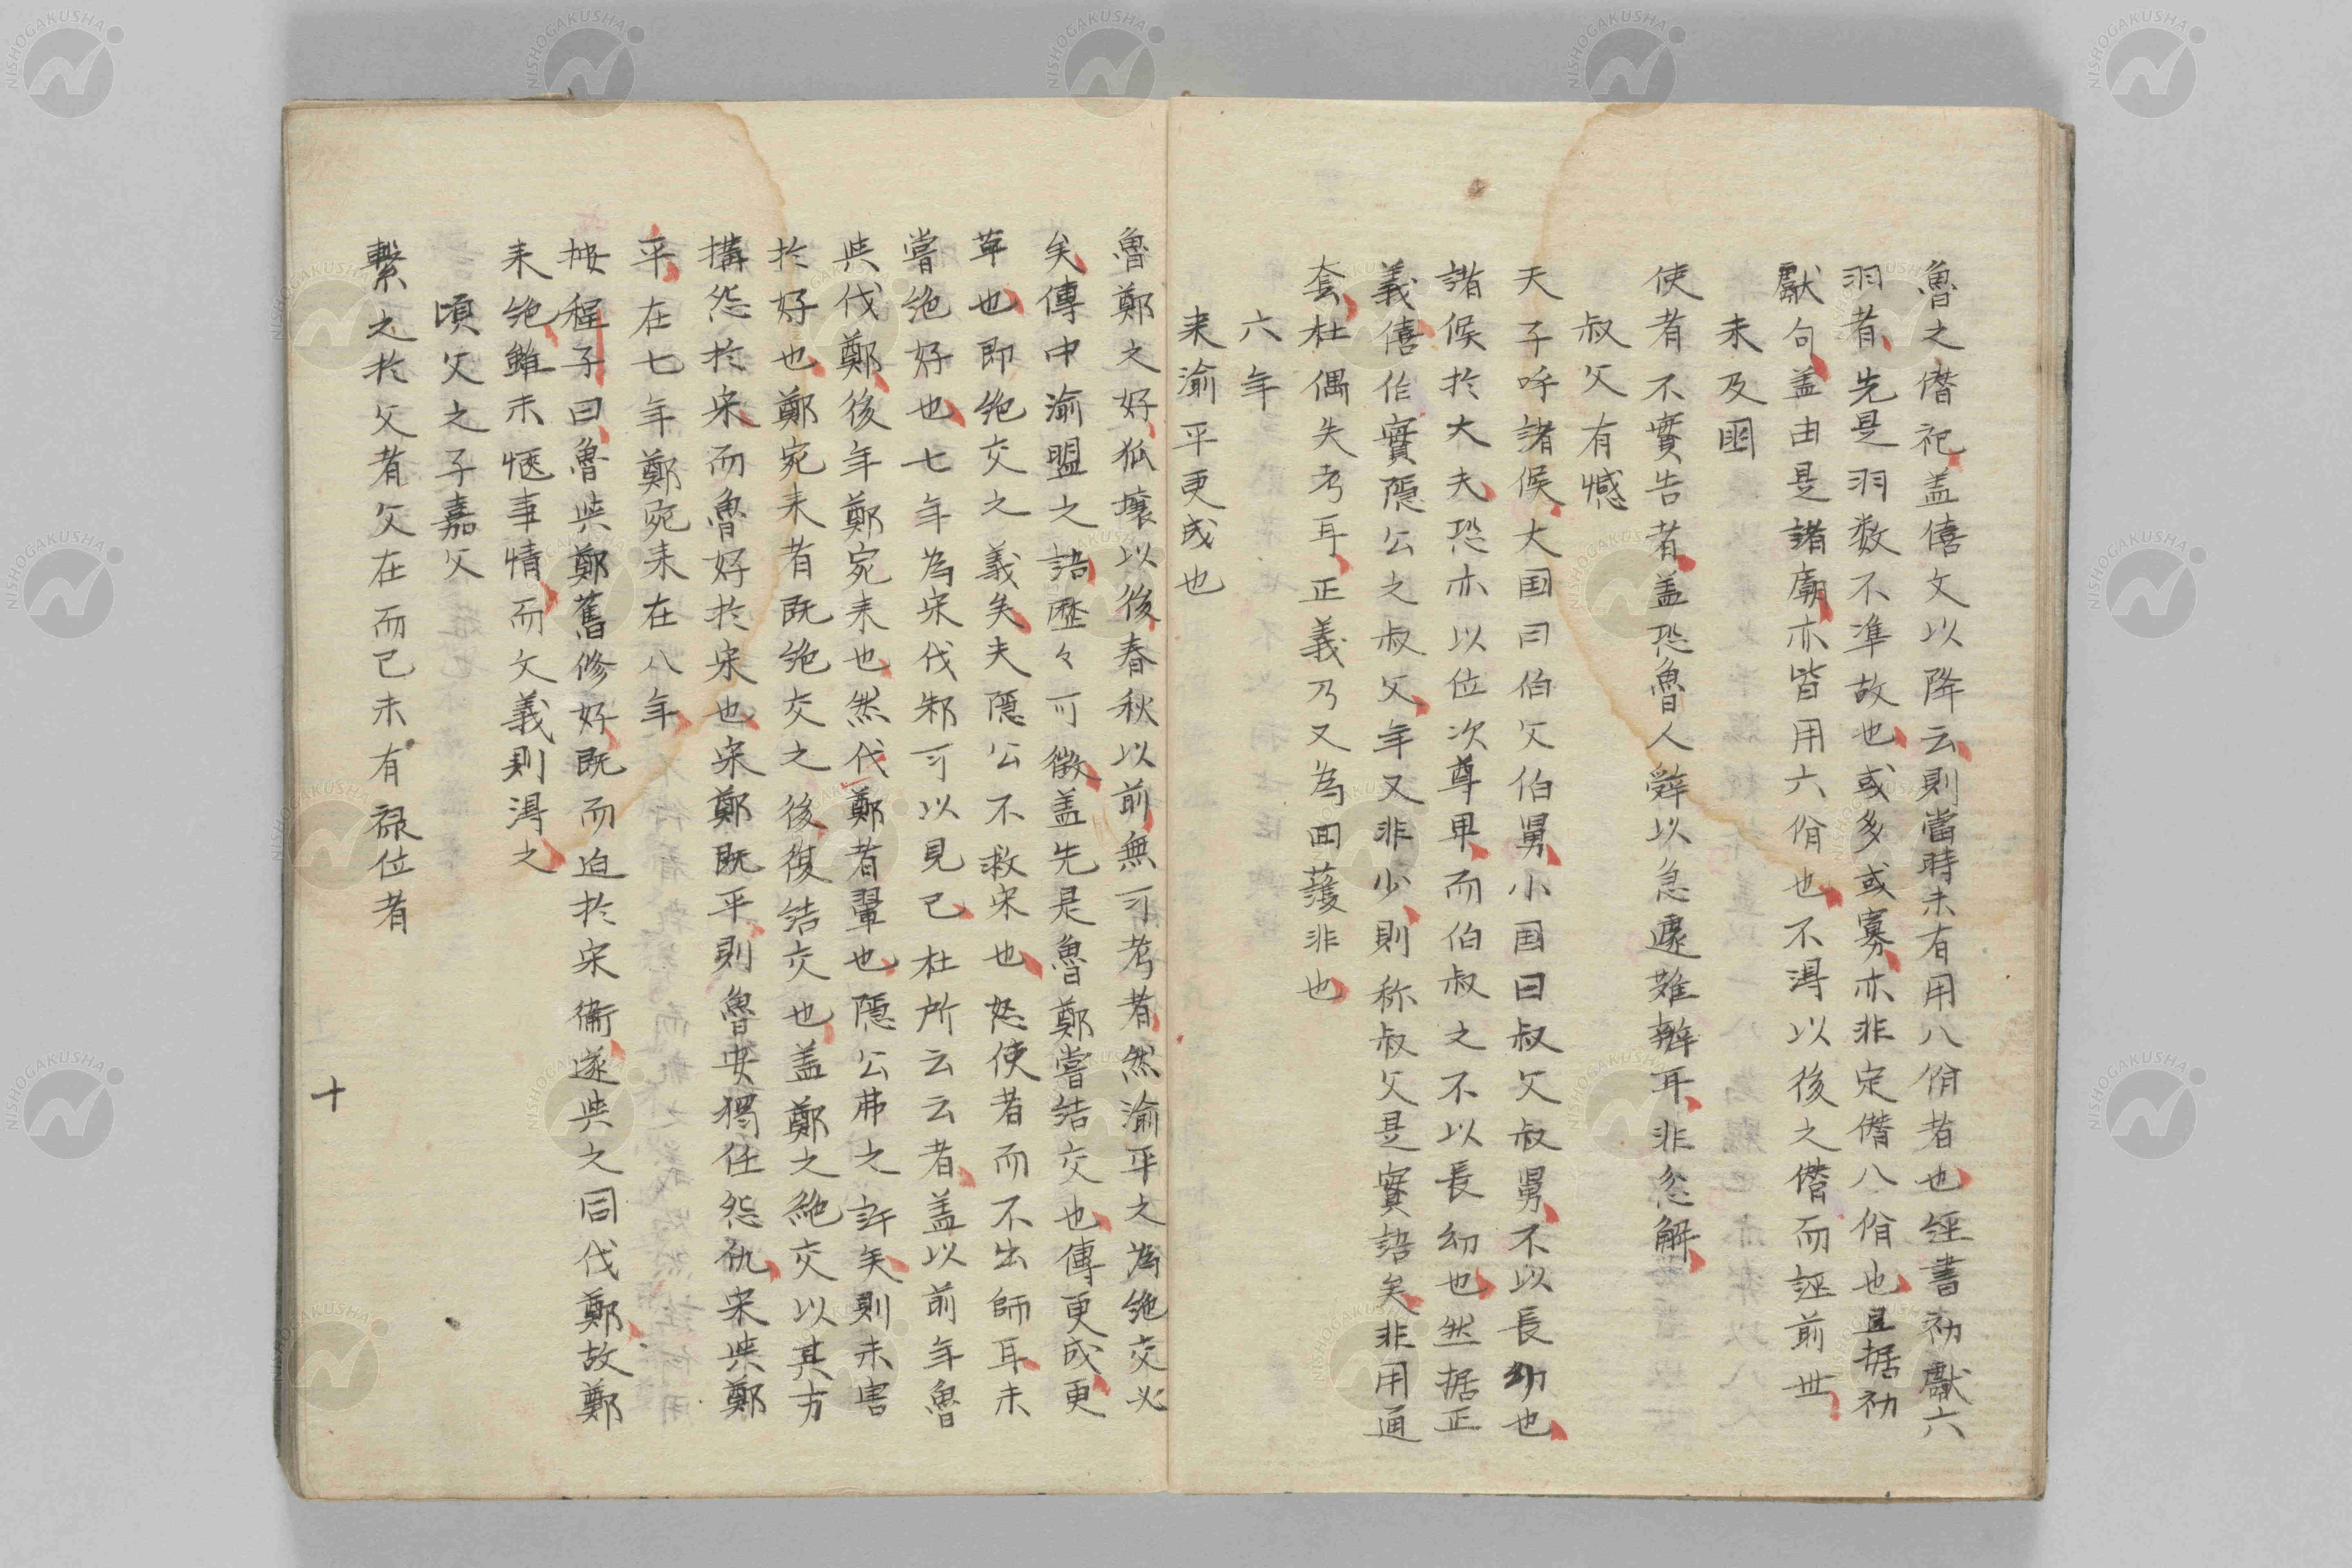 魯之僭祀盖僖文以降云則當時未有用八佾者也經書初獻六
羽者先是羽数不準故也或多或寡亦非定僭八佾也且据初
獻句盖由是諸廟亦皆用六佾也不得以後之僭而誣前世
未及國
使者不實告者盖恐魯人辤以急遽難辦耳非忿解
叔父有憾
天子呼諸侯大国曰伯父伯舅小国曰叔父叔舅不以長幼也
諸侯於大夫恐亦以位次尊卑而伯叔之不以長幼也然据正
義僖伯實隱公之叔父年又非少則称叔父是實語矣非用通
套杜偶失考耳正義乃又為回護非也
六年
来渝平更成也
魯鄭之好狐壤以後春秋以前無可考者然渝平之為絶交必
矣傳中渝盟之語歴々可徴盖先是魯鄭嘗結交也傳更成更
革也即絶交之義矣夫隱公不救宋也怒使者而不出師耳未
嘗絶好也七年為宋伐邾可以見已杜所云云者盖以前年魯
與伐鄭後年鄭宛来也然伐鄭者翬也隱公弗之許矣則未害
於好也鄭宛来者既絶交之後復結交也盖鄭之絶交以其方
搆怨於宋而魯好於宋也宋鄭既平則魯安獨任怨仇宋與鄭
平在七年鄭宛来在八年
按程子曰魯與鄭舊修好既而迫於宋衛遂與之同伐鄭故鄭
来絶雖未愜事情而文義則得之
頃父之子嘉父
繫之於父者父在而己未有禄位者
十